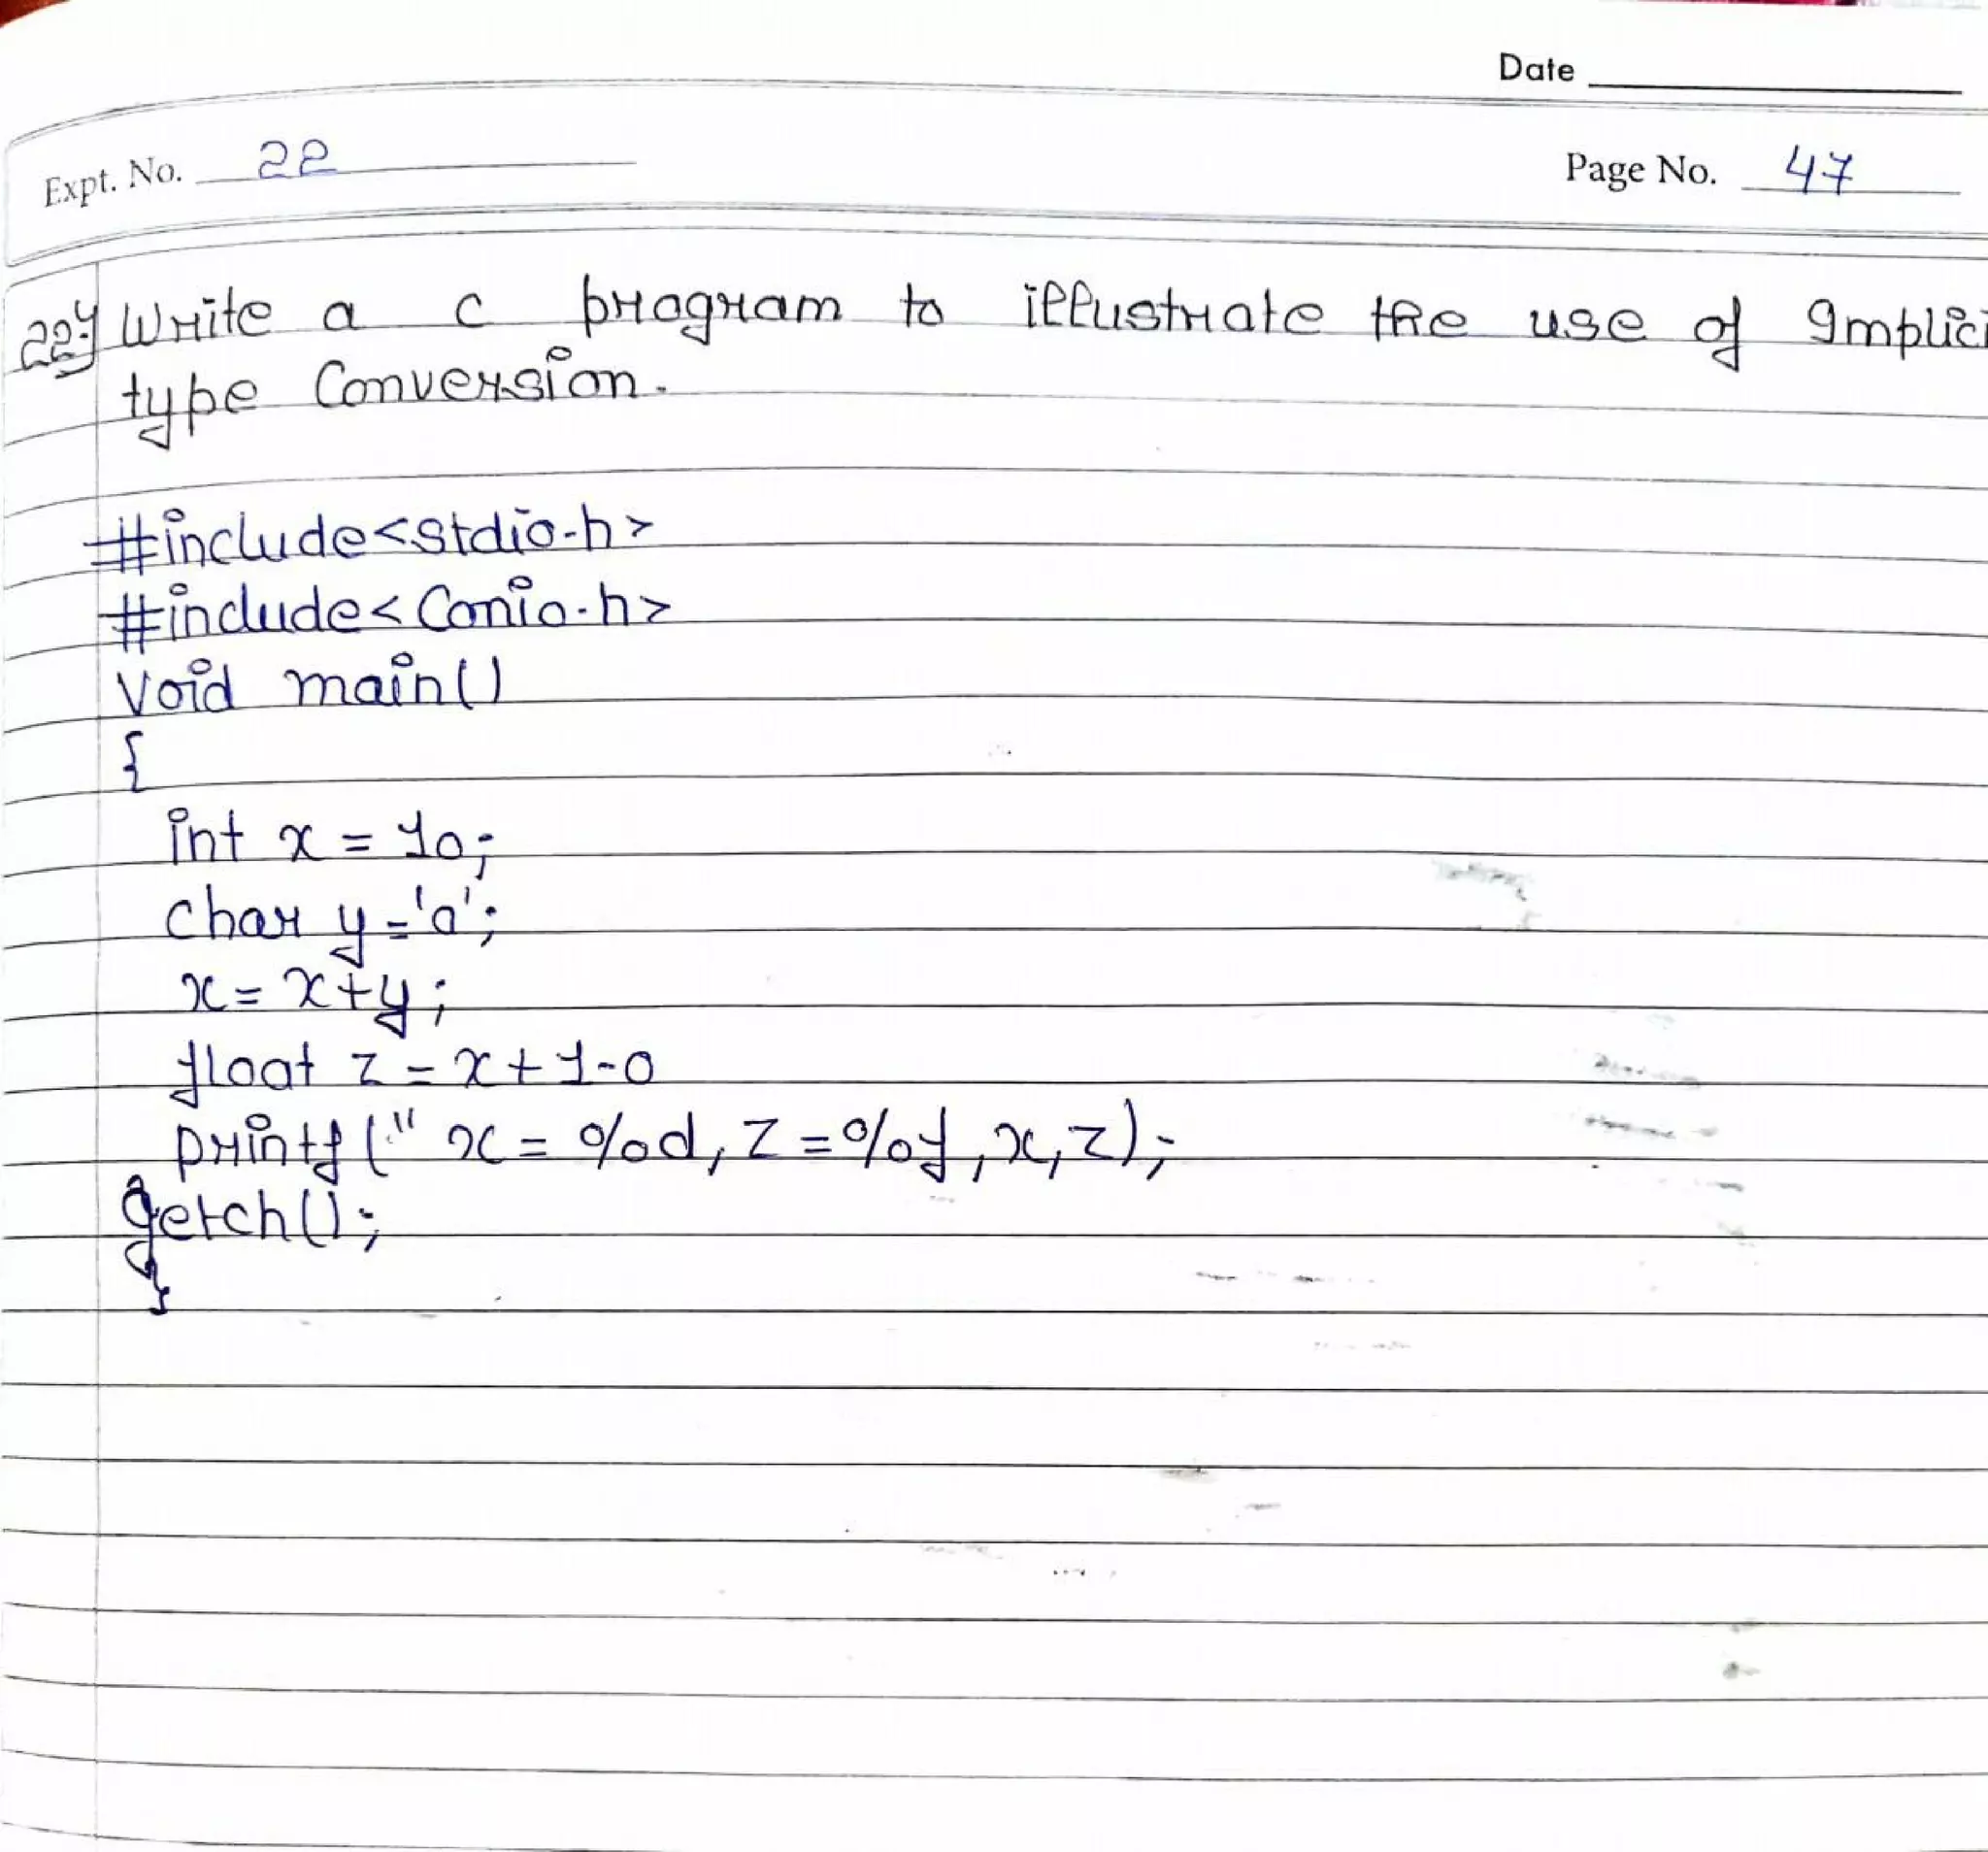 Date
Expt. No. 22
Page No. 47
22) Write a c program to illustrate the use of Implici
type Conversion.
#include<stdio.h>
#include<Conio.h>
Void main()
{
int x = 10;
char y='a';
x = x+y;
float z = x+1.0
printf(" x = %d, z =%f, x, z);
getch();
}